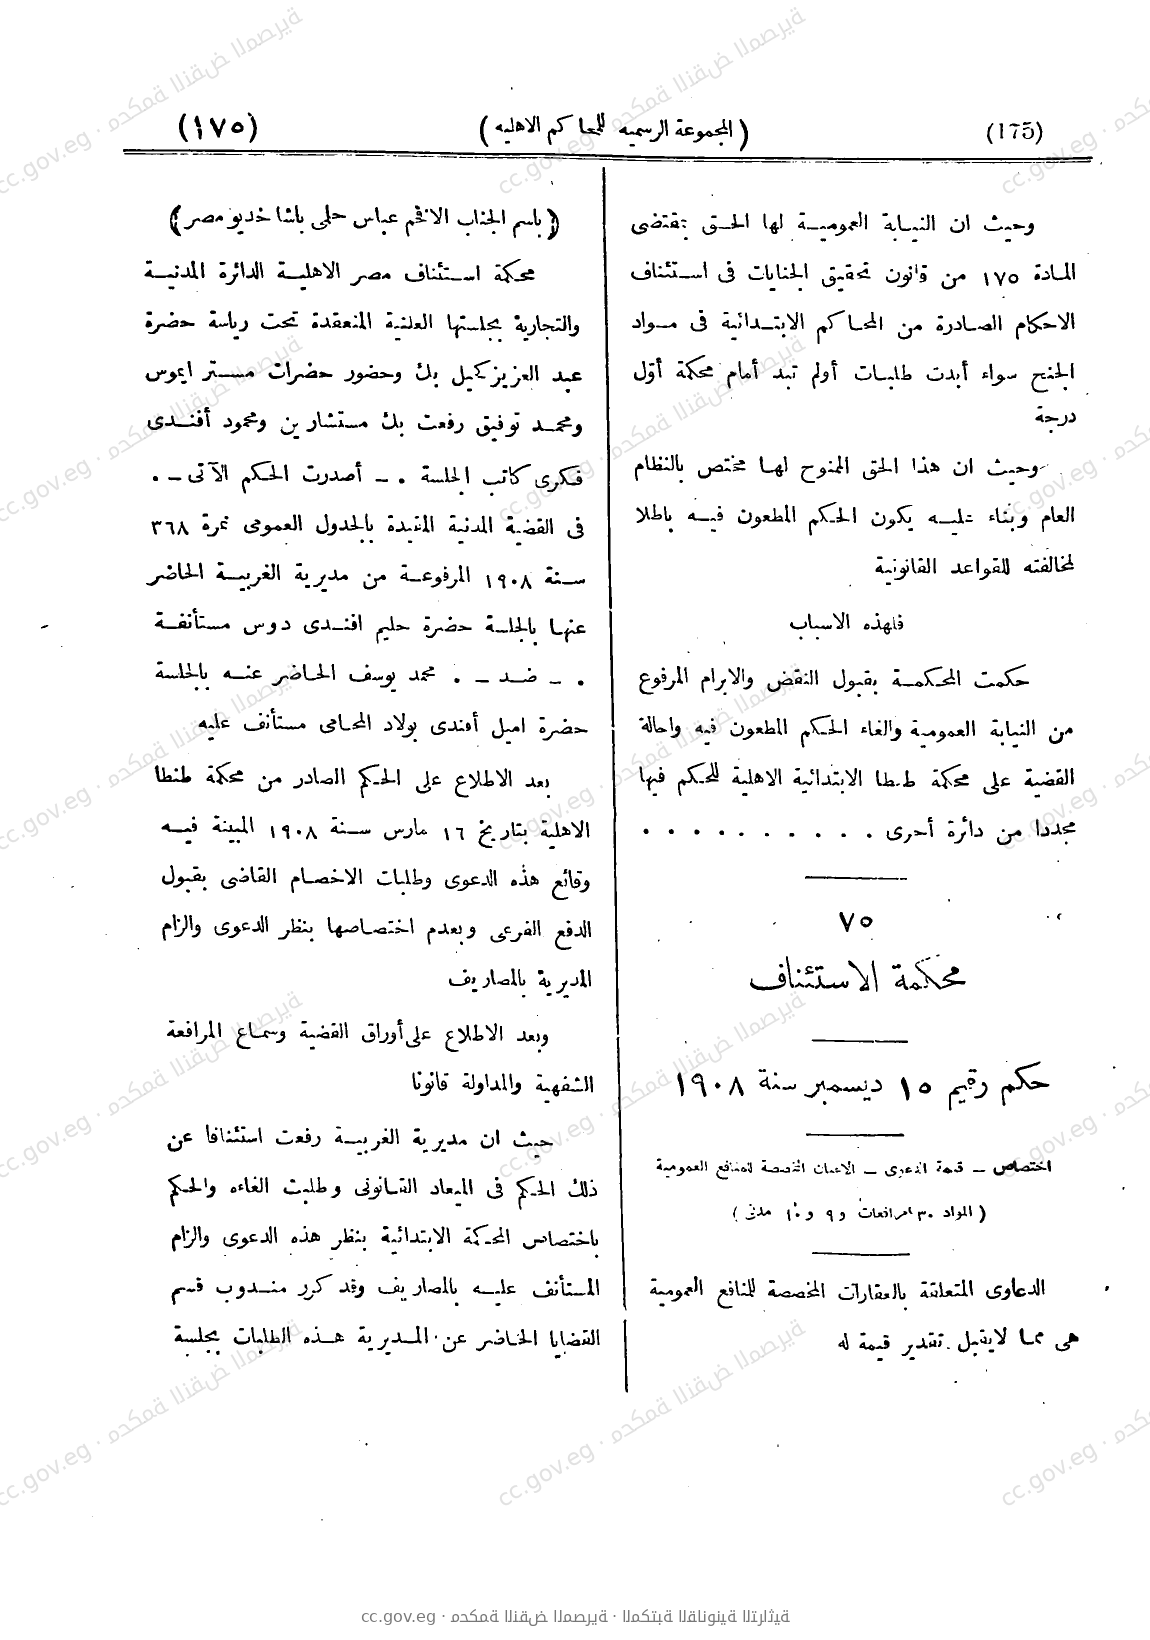 (175) (المجموعة الرسميه للمحاكم الاهليه) (١٧٥)
وحيث ان النيابة العمومية لها الحق بمقتضى
المادة ١٧٥ من قانون تحقيق الجنايات فى استئناف
الاحكام الصادرة من المحاكم الابتدائية فى مواد
الجنح سواء أبدت طلبات أولم تبد أمام محكمة أول
درجة
وحيث ان هذا الحق الممنوح لها مختص بالنظام
العام وبناء عليه يكون الحكم المطعون فيه باطلا
لمخالفته للقواعد القانونية
فلهذه الاسباب
حكمت المحكمة بقبول النقض والابرام المرفوع
من النيابة العمومية والغاء الحكم المطعون فيه واحالة
القضية على محكمة طنطا الابتدائية الاهلية للحكم فيها
مجددا من دائرة أخرى . . . . . . . . . .
٧٥
محكمة الاستئناف
حكم رقيم ١٥ ديسمبر سنة ١٩٠٨
اختصاص – قيمة الدعوى – الاعيان المخصصة للمنافع العمومية
(المواد ٣٠ مرافعات و ٩ و ١٠ مدنى)
الدعاوى المتعلقة بالعقارات المخصصة للمنافع العمومية
هى مما لايقبل تقدير قيمة له
(باسم الجناب الافخم عباس حلمى باشا خديو مصر)
محكمة استئناف مصر الاهلية الدائرة المدنية
والتجارية بجلستها العلنية المنعقدة تحت رياسة حضرة
عبد العزيز كحيل بك وحضور حضرات مستر ايموس
ومحمد توفيق رفعت بك مستشارين ومحمود أفندى
فكرى كاتب الجلسة . – أصدرت الحكم الآتى – .
فى القضية المدنية المقيدة بالجدول العمومى نمرة ٣٦٨
سنة ١٩٠٨ المرفوعة من مديرية الغربية الحاضر
عنها بالجلسة حضرة حليم افندى دوس مستأنفة
. – ضد – . محمد يوسف الحاضر عنه بالجلسة
حضرة اميل أفندى بولاد المحامى مستأنف عليه
بعد الاطلاع على الحكم الصادر من محكمة طنطا
الاهلية بتاريخ ١٦ مارس سنة ١٩٠٨ المبينة فيه
وقائع هذه الدعوى وطلبات الاخصام القاضى بقبول
الدفع الفرعى وبعدم اختصاصها بنظر الدعوى والزام
المديرية بالمصاريف
وبعد الاطلاع على أوراق القضية وسماع المرافعة
الشفهية والمداولة قانونا
حيث ان مديرية الغربية رفعت استئنافا عن
ذلك الحكم فى الميعاد القانونى وطلبت الغاءه والحكم
باختصاص المحكمة الابتدائية بنظر هذه الدعوى والزام
المستأنف عليه بالمصاريف وقد كرر مندوب قسم
القضايا الحاضر عن المديرية هذه الطلبات بجلسة
cc.gov.eg · محكمة النقض المصرية · المكتبة القانونية التراثية